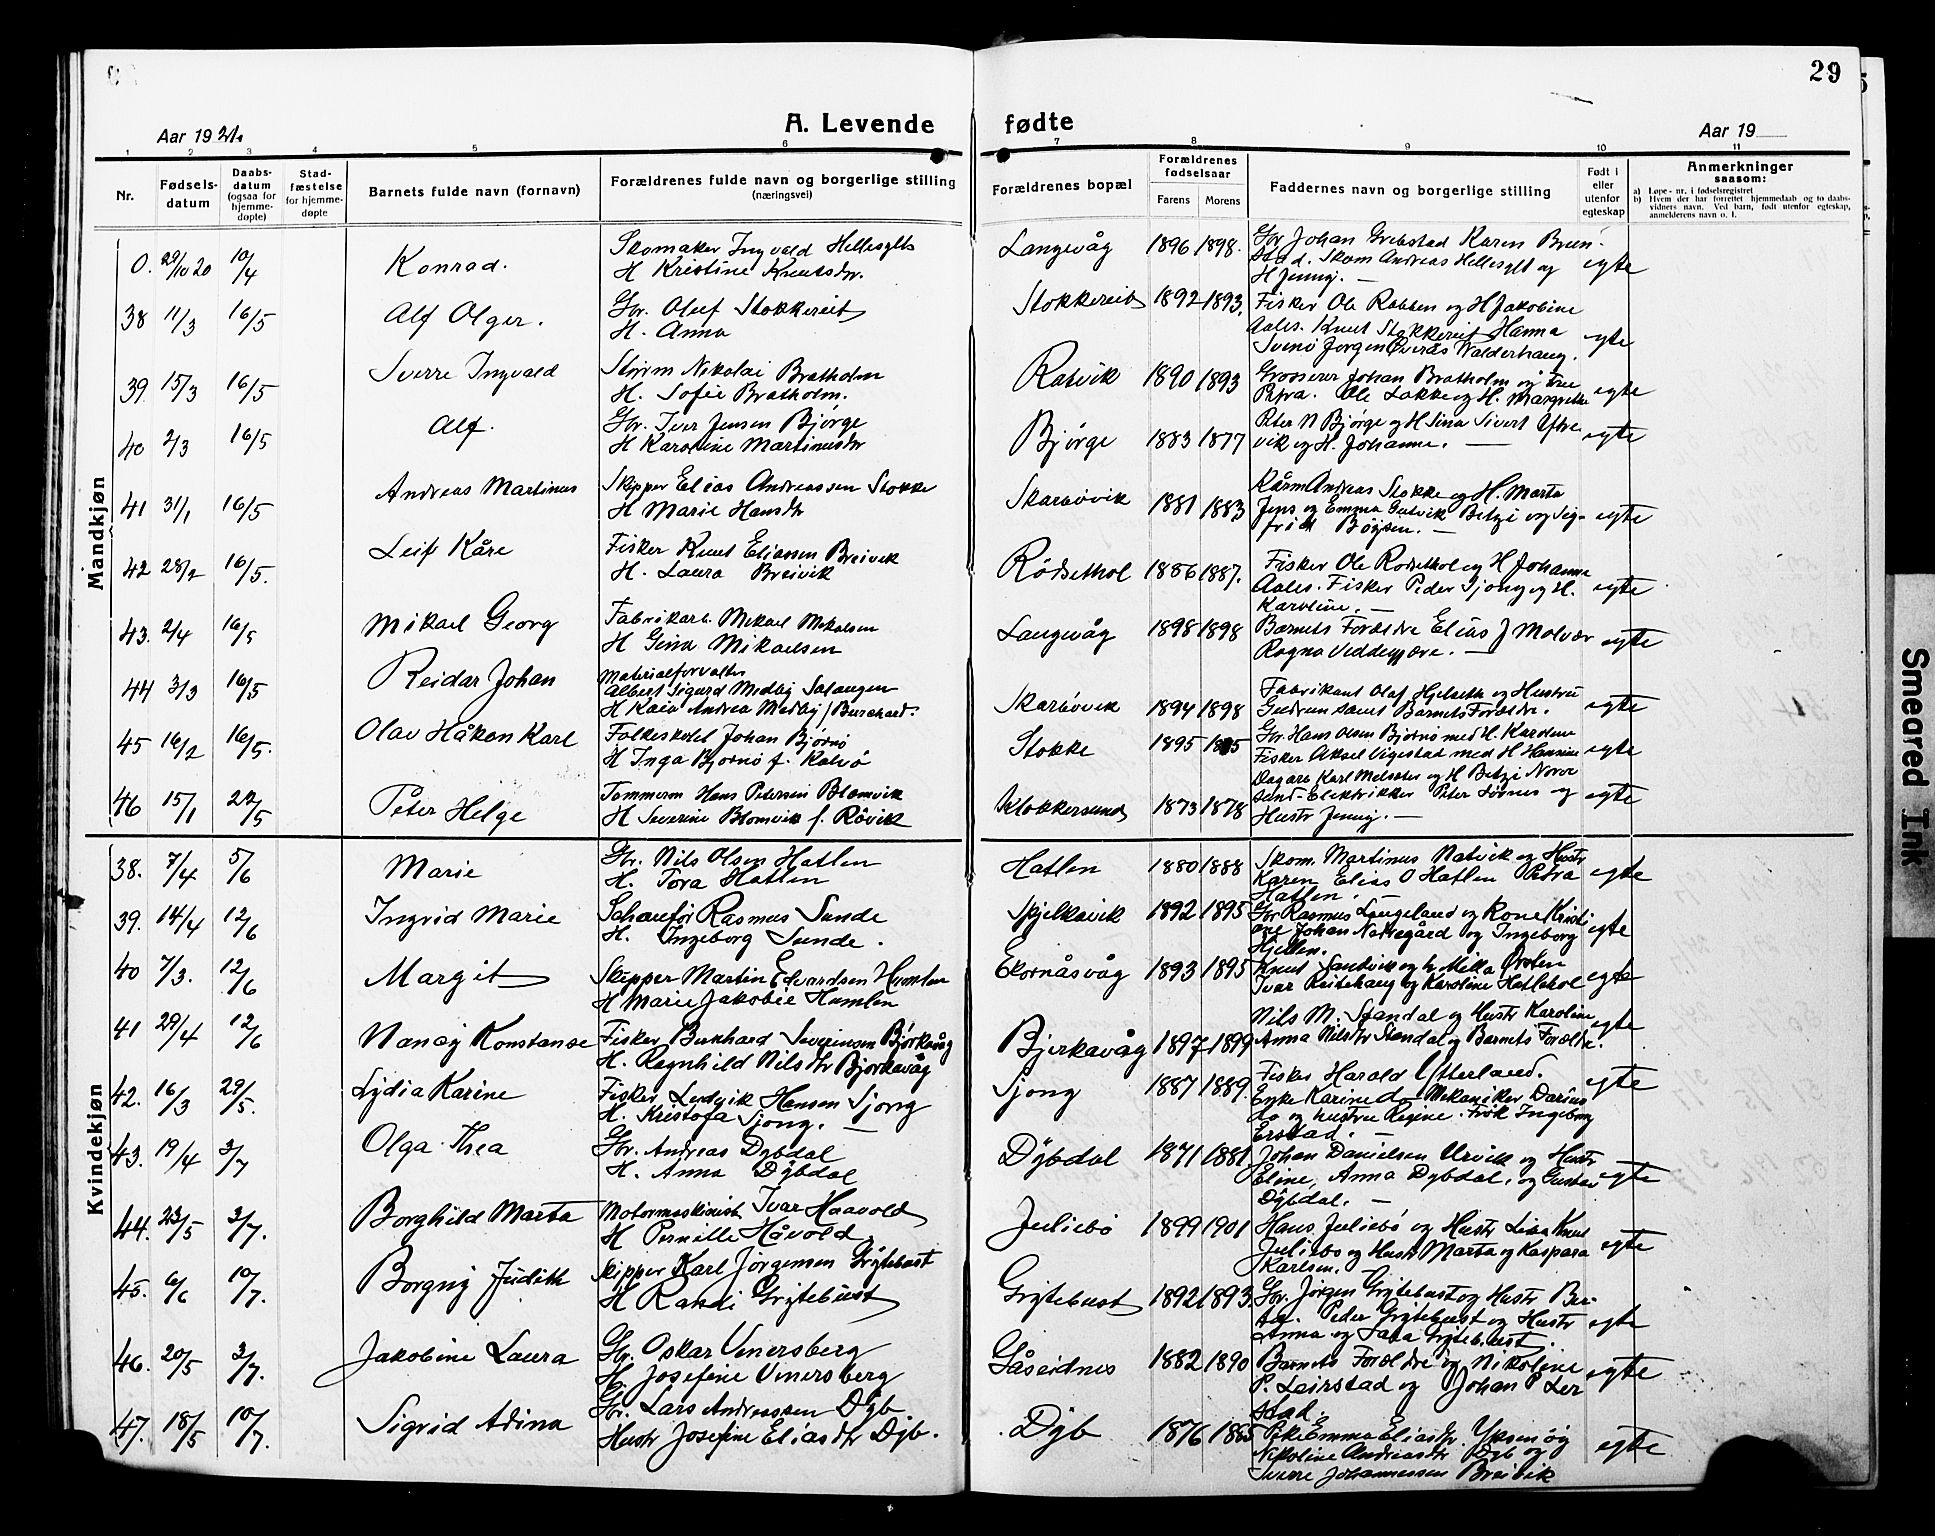 29
Aar 1921.
A. Levende fødte
Aar 19
1 2 3 4 5 6 7 8 9 10 11
Nr.
Fødsels-
datum
Daabs-
datum
(ogsaa for
hjemme-
døpte)
Stad-
fæstelse
for hjemme-
døpte
Barnets fulde navn (fornavn)
Forældrenes fulde navn og borgerlige stilling
(næringsvei)
Forældrenes bopæl
Forældrenes
fødselsaar
Farens Morens
Faddernes navn og borgerlige stilling
Født i
eller
utenfor
egteskap
Anmerkninger
saasom:
a) Løpe-nr. i fødselsregistret
b) Hvem der har forrettet hjemmedaab og to daabs-
vidners navn. Ved barn, født utenfor egteskap,
anmelderens navn o. l.
Mandkjøn
0. 29/10 20 10/4 Konrad. Skomaker Ingvald Hellesylt
H Kristine Knutsdr. Langevåg 1896 1898. Gbr Johan Grebstad Karen Brun-
stad. Skom Andreas Hellesylt og
H Jenny. — egte
38 11/3 16/5 Alf Olger. Gbr. Oluf Stokkereit
H. Anna Stokkereit 1892 1893. Fisker Ole Rabben og H Jakobine
Aales. Knut Stokkereit Hanna
Svenø Jørgen Øverås Valderhaug. egte
39. 15/3 16/5 Sverre Ingvald Styrm Nikolai Bratholm
H. Sofie Bratholm. Ratvik 1890 1893 Grosserer Johan Bratholm og Frue
Petra. Ole Løkke og H. Margrethe egte
40 2/3 16/5 Alf. Gbr. Iver Jensen Bjørge
H Karoline Martinusdr Bjørge 1883 1877 Peter N Bjørge og H Sina Sivert Eftre-
vik og H. Johanne. — egte
41 31/1 16/5 Andreas Martinus Skipper Elias Andreassen Stokke
H Marie Hansdr Skarbövik 1881 1883 Kårm Andreas Stokke og H. Marta
Jens og Emma Gutvik Betzi og Sig-
frid Bögsen. — egte
42 28/2 16/5. Leif Kåre Fisker Knut Eliassen Breivik
H. Laura Breivik Rödsethol 1886 1887. Fisker Ole Rödsethol og H Johanne
Aales. Fisker Peder Sjong og H.
Karoline. — egte
43. 2/4 16/5 Mikael Georg Fabrikarb. Mikael Mikalsen
H Gina Mikaelsen Langevåg 1898 1898 Barnets Foreldre Elias J Molvær
Ragna Veddegjøre. — egte
44 3/3 16/5 Reidar Johan Materialforvalter
Albert Sigurd Medby Salangen
H Kaia Andrea Medby f Burchard. Skarbövik 1894 1898 Fabrikant Olaf Hjelseth og Hustru
Gudrun samt Barnets Foreldre. egte
45 16/2 16/5. Olav Håkon Karl Folkeskolel Johan Bjørnø
H Inga Bjørnø f. Kalvö Stokke 1895 1895 Gbr. Hans Olsen Bjørnø med H. Karoline
Fisker Aksel Vigestad med H Hansine egte
46 15/1 22/5 Peter Helge Tømmerm Hans Petersen Blomvik
H Severine Blomvik f. Rövik Klokkersund 1873 1878 Dagarb Karl Melsæter og H Betzi Norve
sund - Elektrikker Peter Sørnes og
Hustr Jenny. — egte
Kvindekjøn
38. 7/4 5/6 Marie Gbr. Nils Olsen Hatlen
H. Tora Hatlen Hatlen 1880 1888 Skom. Martinus Natvik og Hustr
Karen Elias O Hatlen Petra
Hatlen. — egte
39. 14/4 12/6 Ingrid Marie Schauför Rasmus Sunde
H. Ingeborg Sunde. Spjelkavik 1892 1895 Gbr Rasmus Langeland og Kone Kristi
ane Johan Nakkegård og Ingeborg
Hjellen. egte
40 7/3. 12/6 Margit Skipper Martin Edvardsen Humlen
H Marie Jakobie Humlen Ekornåsvåg 1893 1895 Knut Sandvik og h. Milla Ørsten
Ivar Reitehaug og Karoline Hatlehol egte
41 29/4 12/6 Nancy Konstanse Fisker Burkhard Severinsen Björkavåg
H. Ragnhild Nilsdr Björkavåg Bjerkavåg 1897 1899 Nils M. Standal og Hustr Karoline
Anna Nilsdr Standal og Barnets Foreldre. egte
42. 16/3 29/5. Lydia Karine Fisker Ludvik Hansen Sjong
H. Kristofa Sjong. — Sjong 1887 1889. Fisker Harald Ytterland.
Enke Karine do - Mekaniker Darius
do og hustru Regine. Frøk Ingeborg
Erstad. — egte
43. 19/4 3/7 Olga Thea Gbr. Andreas Dybdal
H. Anna Dybdal Dybdal 1871 1881 Johan Danielsen Urvik og Hustr
Eline, Anna Dybdal. og Gustav
Dybdal. — egte
44. 23/5 3/7. Borghild Marta Motormaskinist Ivar Haavold
H Pernille Håvold Juliebö 1899 1901 Hans Juliebö og Hustr Lisa Knut
Juliebö og Hustr Marta og Kaspara
Karlsen. egte
45. 6/6 10/7. Borgny Judith Skipper Karl Jørgensen Grytebust
H Randi Grytebust Grytebust 1892 1893 Gbr. Jørgen Grytebust og Hustr Ber-
te. Peder Grytebust og Hustr
Anna og Lara Grytebust. egte
46. 20/5 3/7. Jakobine Laura Gbr. Oskar Unersberg
H. Josefine Unersberg Gåseidnes 1882 1890 Barnets Foreldre og Nikoline
P. Leirstad og Johan P Leir
stad. egte
47. 18/5 10/7. Sigrid Adina Gbr. Lars Andreassen Dyb
Hustr Josefine Eliasdtr Dyb. Dyb 1876 1885 Pike Emma Eliasdtr. Yksnøy
Nikoline Andreasdtr Dyb og
Sverre Johannessen Breivik egte
Smeared Ink